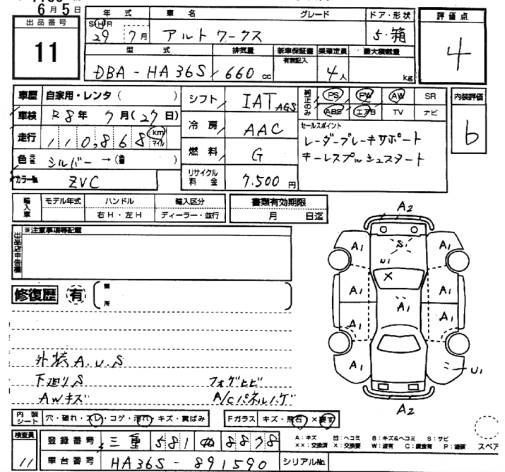 6月5日
出品番号
11
年式 車名 グレード ドア・形状
S H R
29年 7月 アルトワークス 5・箱
評価点
4
型式 排気量 新車保証書 乗車定員 最大積載量
有無記入
DBA-HA36S 660cc 4人 kg
車歴 自家用・レンタ( )
車検 R8年7月(27日)
走行 110,868 km マイル
色 シルバー→( )
カラーNo. ZVC
シフト IAT AGS
冷房 AAC
燃料 G
リサイクル料金 7,500円
PS PW AW SR
ABS エアB TV ナビ
セールスポイント
レーダーブレーキサポート
キーレスプッシュスタート
内装評価
b
輸入車 モデル年式 ハンドル 輸入区分
右H・左H ディーラー・並行
書類有効期限
月 日迄
※注意事項等記載
修復歴 有
箇所
外装A.U.S
下廻りS フォグヒビ
AWキズ A/Cパネルハゲ
A2
A1 S1 A1
U1
X
A1 A1 A1
A1 A1
A1 A1 U1
A2
内装シート 穴・破れ・スレ・コゲ・汚れ・キズ・黄ばみ
Fガラス キズ・飛石・X要す
検査員 11
登録番号 三重 581 ぬ 8878
車台番号 HA36S-891590 シリアルNo.
A:キズ U:ヘコミ B:キズ&ヘコミ S:サビ
X:要交換 XX:交換済 W:波有 C:腐食有 P:塗装
スペア